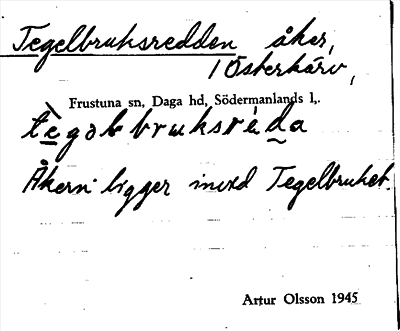 Tegelbruksredden åker,
i Österkärv,
Frustuna sn, Daga hd, Södermanlands l,.
Åkern ligger invid Tegelbruket.
Artur Olsson 1945